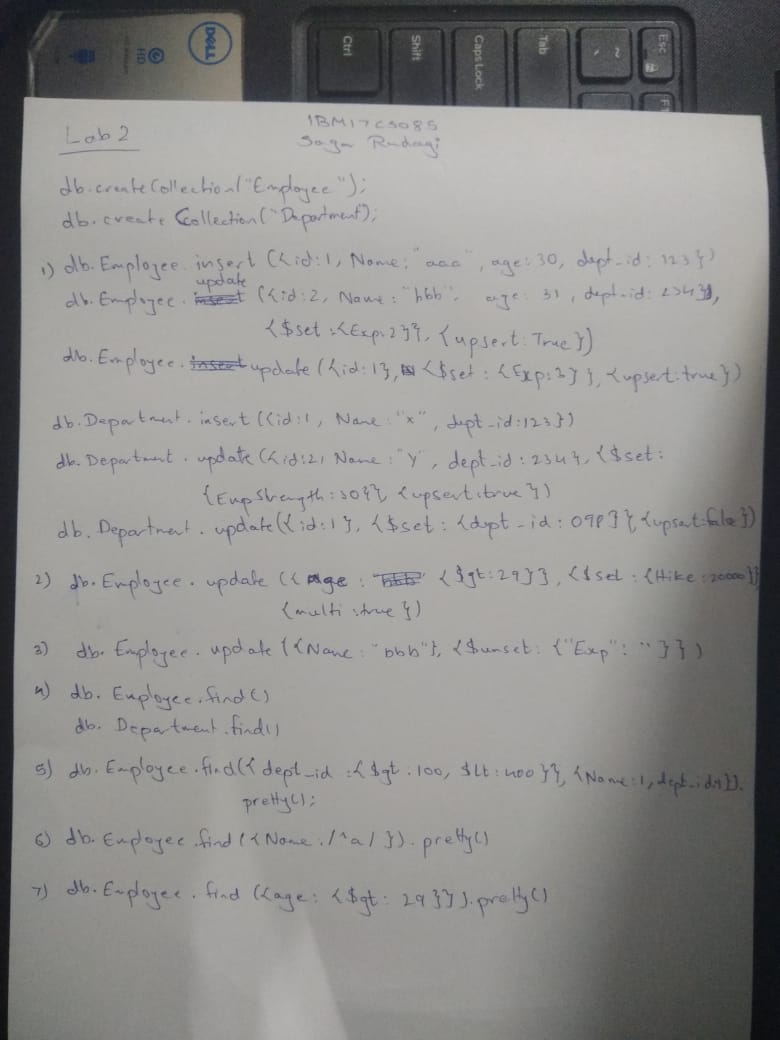 DELL
HD
Ctrl
Shift
Caps Lock
Tab
~
Esc
F1
Lab 2
1BM17CS085
Sagar Rudagi
db.createCollection("Employee");
db.create Collection("Department);
1) db. Employee. insert ({id:1, Name: "aaa", age: 30, dept_id: 123})
update
db. Employee. insert ({id:2, Name: "bbb", age: 31, dept_id: 234}),
{$set:{Exp:2}}, {upsert: True})
db. Employee. insert update ({id:1}, {$set: {Exp:3}}, {upsert:true})
db. Department. insert ({id:1, Name: "x", dept_id:123})
db. Department. update ({id:2, Name: "Y", dept_id: 234}, {$set:
{EmpStrength:30}}, {upsert:true})
db. Department. update({id:1}, {$set: {dept_id: 098}} {upsert:false})
2) db. Employee. update ({age: {$gt:29}}, {$set: {Hike:20000}}
{multi:true})
3) db. Employee. update ({Name: "bbb"}, {$unset: {"Exp": "}})
4) db. Employee.find()
db. Department.find()
5) db. Employee.find({dept_id:{$gt:100, $lt:400}}, {Name:1, dept_id:1}).
pretty();
6) db. Employee.find({Name:/^a/}).pretty()
7) db. Employee.find({age: {$gt: 29}}).pretty()